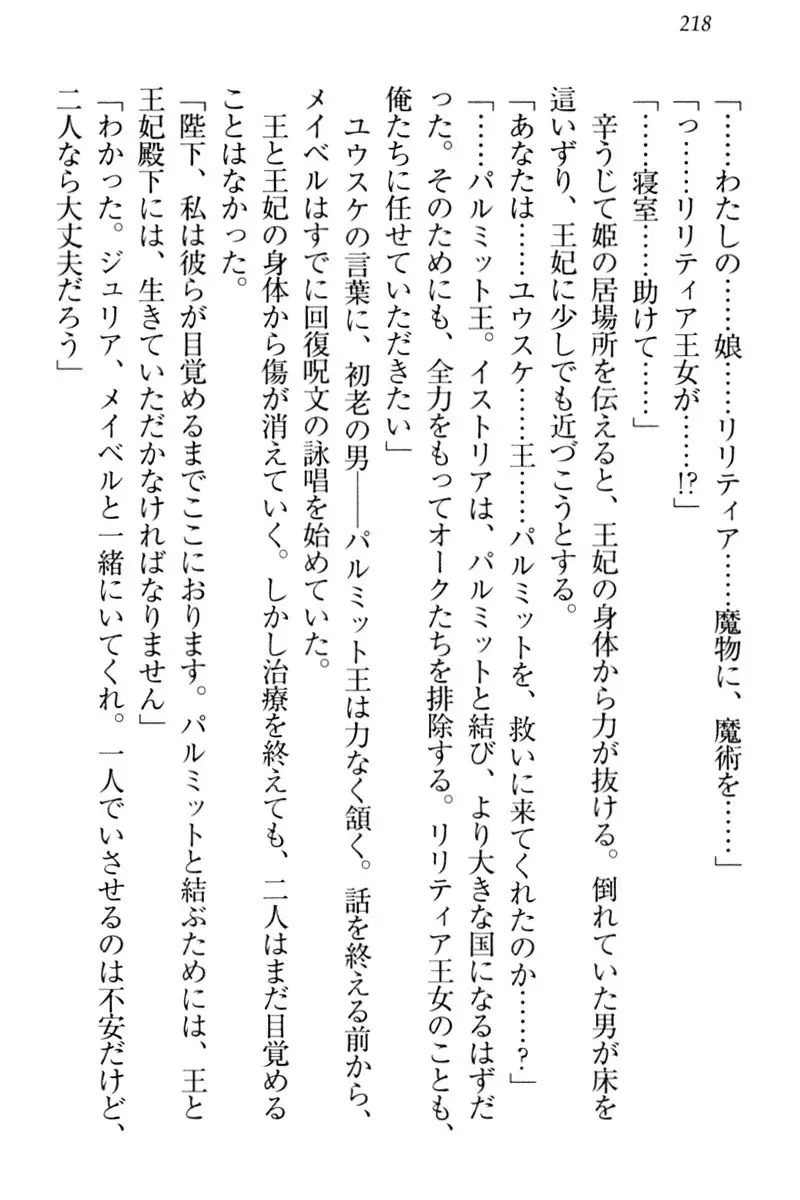 218
「……わたしの……娘……リリティア……魔物に、魔術を……」
「っ……リリティア王女が……!?」
「……寝室……助けて……」
　辛うじて姫の居場所を伝えると、王妃の身体から力が抜ける。倒れていた男が床を
這いずり、王妃に少しでも近づこうとする。
「あなたは……ユウスケ……王……パルミットを、救いに来てくれたのか……?」
「……パルミット王。イストリアは、パルミットと結び、より大きな国になるはずだ
った。そのためにも、全力をもってオークたちを排除する。リリティア王女のことも、
俺たちに任せていただきたい」
　ユウスケの言葉に、初老の男――パルミット王は力なく頷く。話を終える前から、
メイベルはすでに回復呪文の詠唱を始めていた。
　王と王妃の身体から傷が消えていく。しかし治療を終えても、二人はまだ目覚める
ことはなかった。
「陛下、私は彼らが目覚めるまでここにおります。パルミットと結ぶためには、王と
王妃殿下には、生きていただかなければなりません」
「わかった。ジュリア、メイベルと一緒にいてくれ。一人でいさせるのは不安だけど、
二人なら大丈夫だろう」